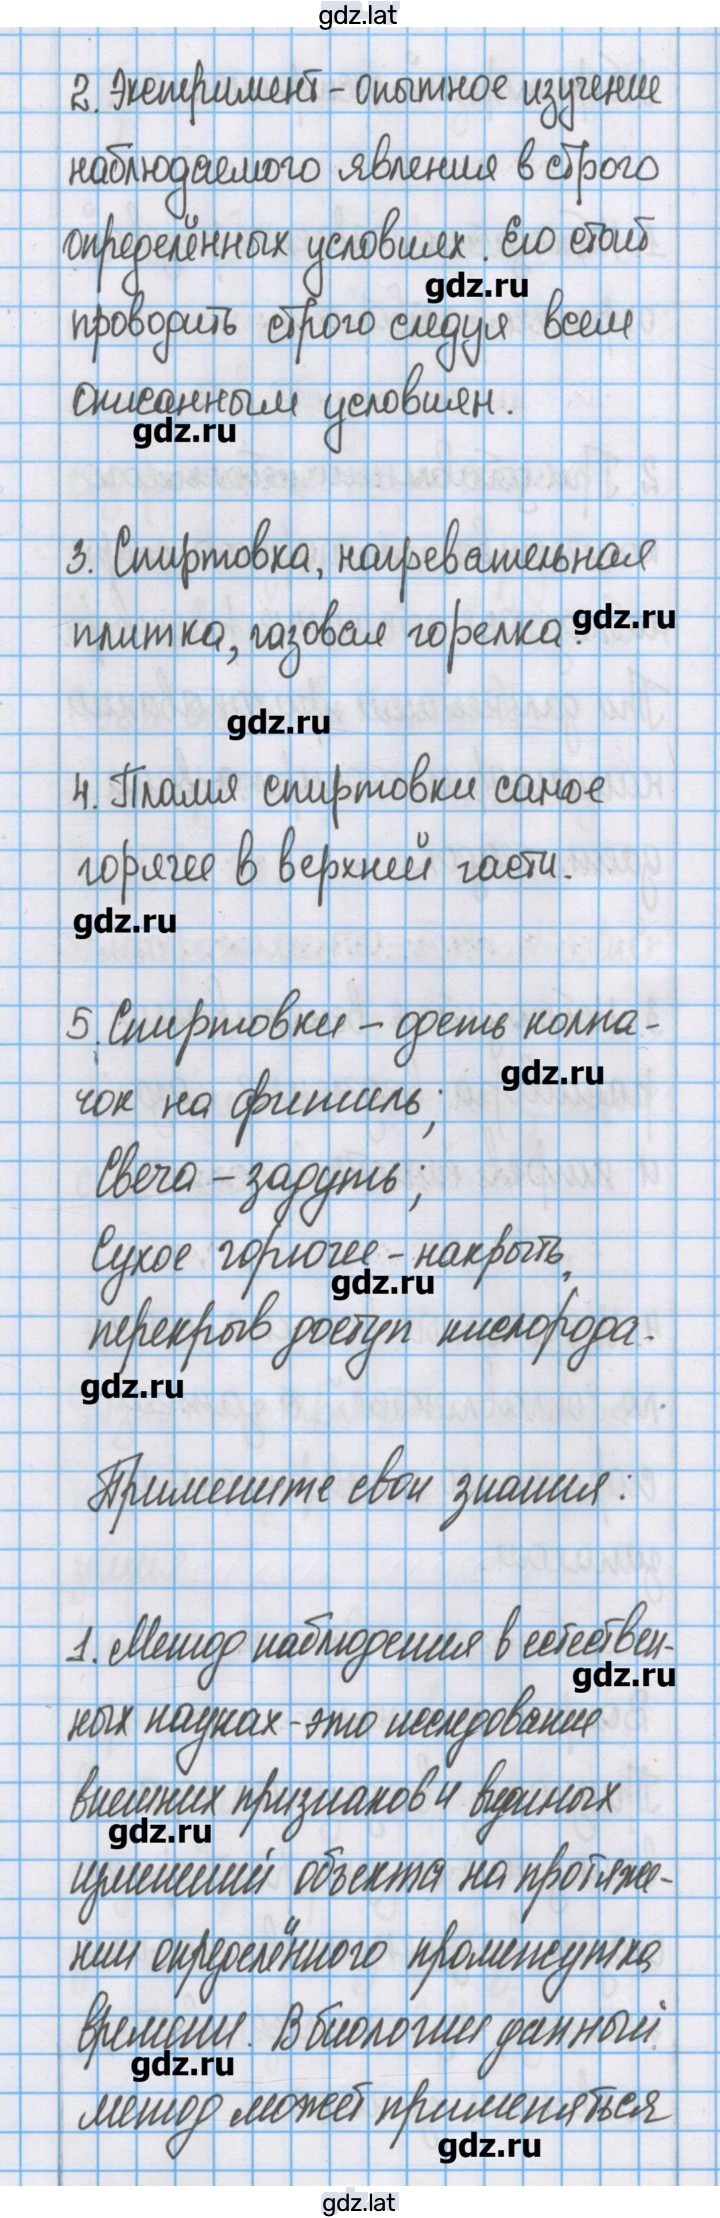 gdz.lat
2. Эксперимент - опытное изучение
наблюдаемого явления в строго
определённых условиях. Его стоит
gdz.ru
проводить строго следуя всем
описанным условиям.
gdz.ru
3. Спиртовка, нагревательная
плитка, газовая горелка.
gdz.ru
gdz.ru
4. Пламя спиртовки самое
горячее в верхней части.
gdz.ru
5. Спиртовки - одеть колпа-
gdz.ru
чок на фитиль;
Свеча - задуть;
Сухое горючее - накрыть,
gdz.ru
перекрыв доступ кислорода.
gdz.ru
Примените свои знания:
1. Метод наблюдения в естествен-
gdz.ru
ных науках - это исследование
внешних признаков и видимых
gdz.ru
изменений объекта на протяже-
нии определённого промежутка
времени. В биологии данный
gdz.ru
метод может применяться
gdz.ru
gdz.lat